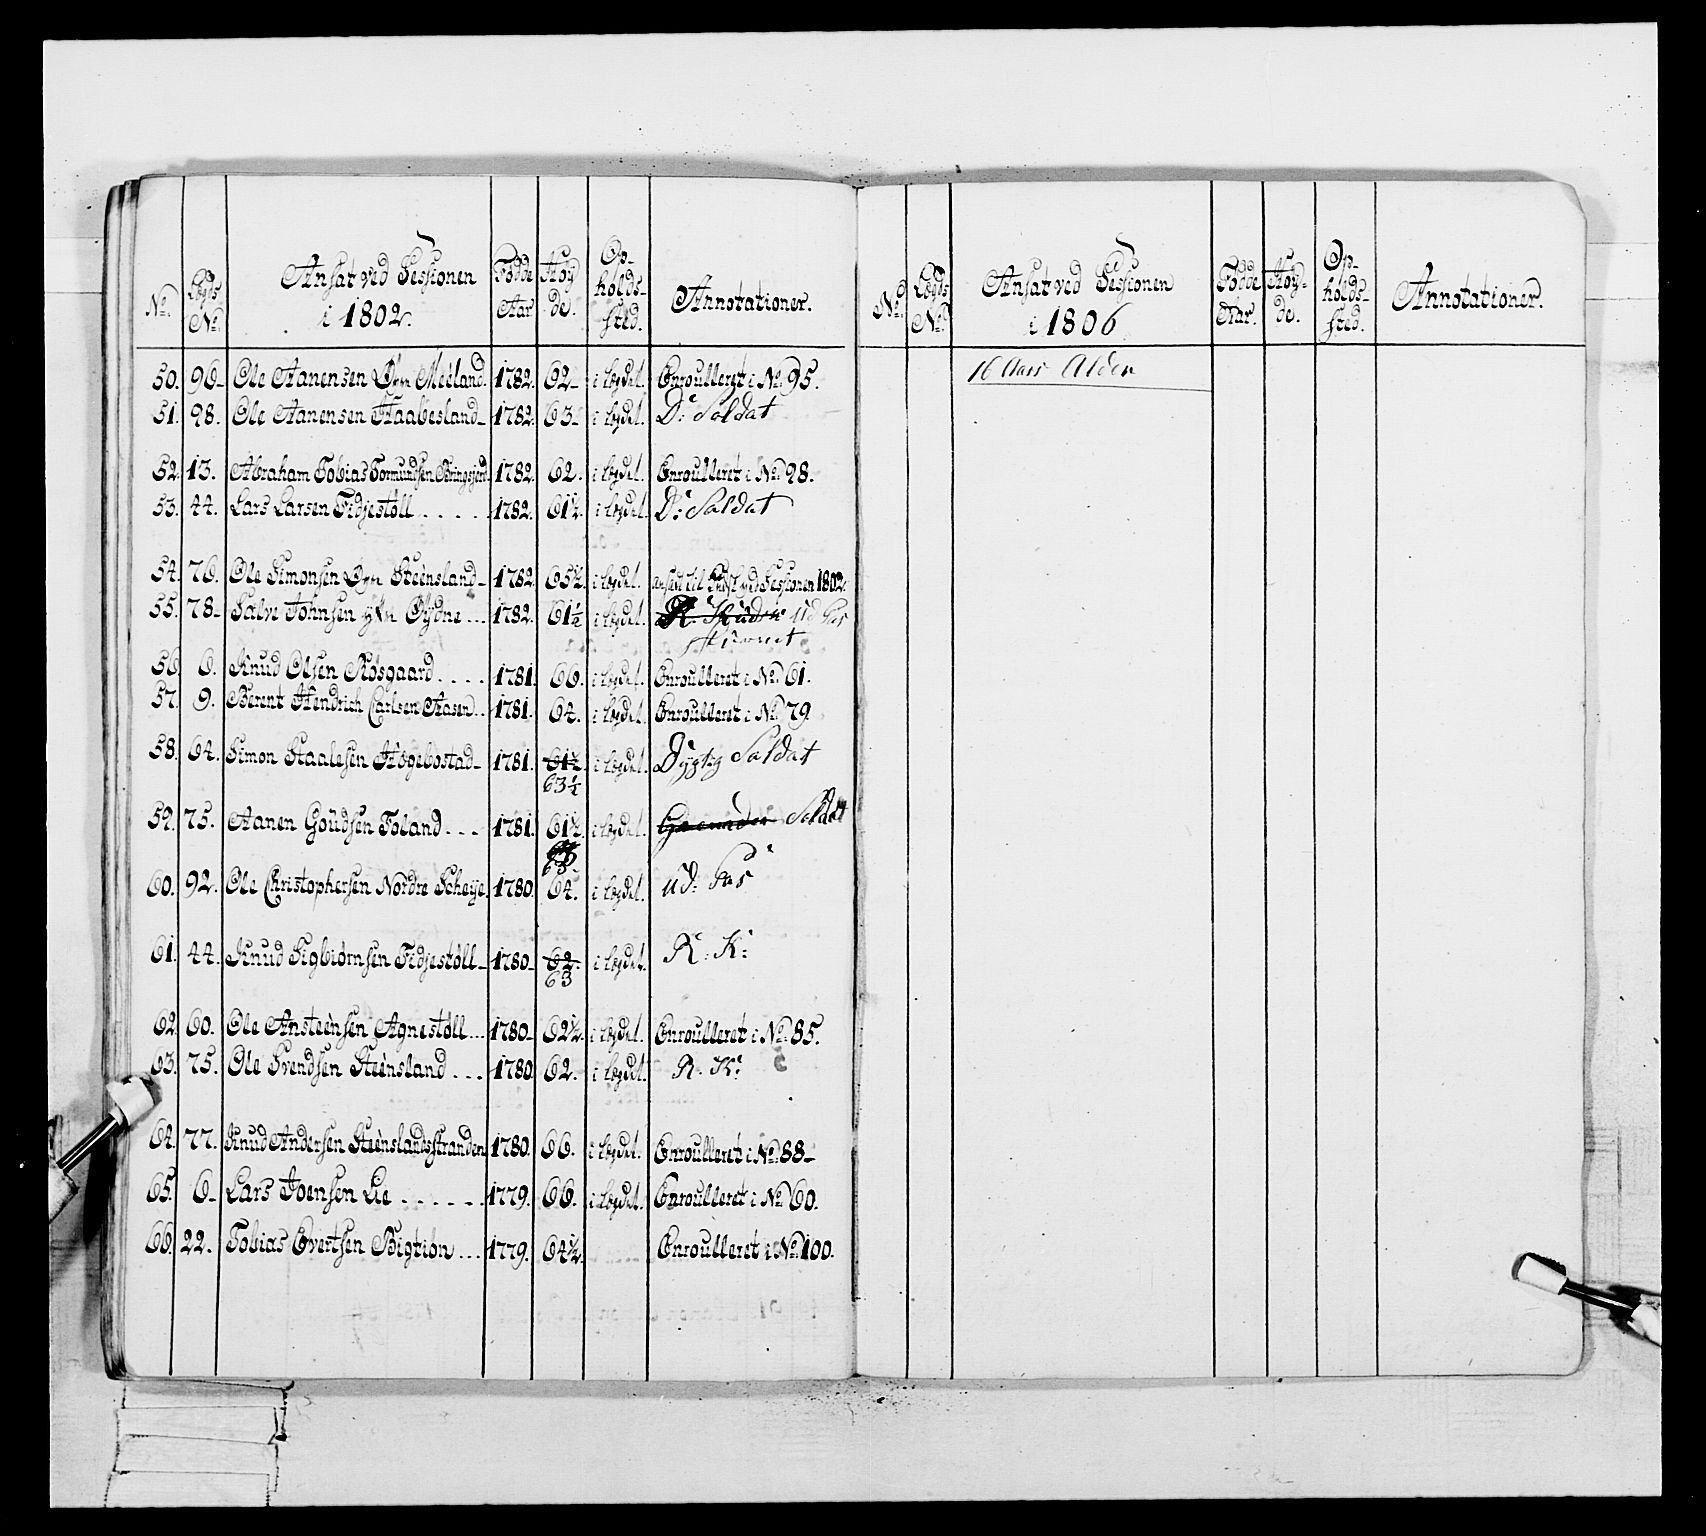 No. Lægds No. Ansat ved Sessionen i 1802. Fødde Aar Høyde. Opholdssted. Annotationer.
50. 96 Ole Aanensen Meeland. 1782. 62 i lægdet. Enroulleret i No. 95.
51. 98. Ole Aanensen Haabesland 1782. 63 i lægdet. D: Soldat
52. 13. Abraham Tobias Tormundsen 1782. 62. i lægdet. Enroulleret i No. 98.
53. 44. Lars Larsen Fidjestøll 1782. 61½. i lægdet. D: Soldat
54. 76. Ole Simonsen Steensland 1782. 65½. i lægdet. ansatt til ved Sessionen 1802.
55. 78 Salve Johnsen Øydne 1782. 61½ i lægdet. ud Pas
56. 6. Knud Olsen Røsgaard 1781. 66. i lægdet. Enroulleret i No. 61.
57. 9. Berent Hendrich Carlsen Aasen 1781. 64. i lægdet. Enroulleret i No. 79
58. 64. Simon Staalesen Høgebostad 1781. 61½. i lægdet. Dygtig Soldat
63¼
59. 75. Aanen Goudsen Foland 1781. 61½. i lægdet. Soldat
63.
60. 92. Ole Christophersen Nordre Scheije 1780. 64. i lægdet. ud: Pas
61. 44. Knud Sigbiørnsen Fidjestøll 1780 62. i lægdet. R: K:
63
62. 60. Ole Ansteensen Agnestøll 1780 62½. i lægdet. Enroulleret i No. 85.
63. 75. Ole Svendsen Steensland 1780 62. i lægdet. R. K:
64. 77. Knud Andersen Steenslandsstranden 1780. 66. i lægdet. Enroulleret i No. 88
65. 6 Lars Joensen Lie 1779. 66. i lægdet. Enroulleret i No. 60.
66. 22. Tobias Evertsen Bigtion 1779. 64½. Enroulleret i No. 100.
No. Lægds No. Ansat ved Sessionen i 1806 Fødde Aar. Høyde. Opholdssted. Annotationer.
16 Aars Alder